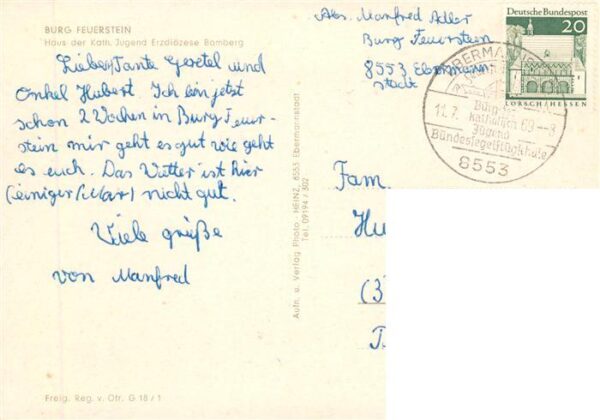 BURG FEUERSTEIN
Haus der Kath. Jugend Erzdiözese Bamberg
Liebe Tante Gretel und
Onkel Hubert. Ich bin jetzt
schon 2 Wochen in Burg Feuer-
stein mir geht es gut wie geht
es euch. Das Wetter ist hier
nicht gut.
Viele grüße
von Manfred
Freig. Reg. v. Ofr. G 18/1
Aufn. u. Verlag Photo-HEINZ, 8553 Ebermannstadt
Tel. 09194/302
Abs. Manfred Adler
Burg Feuerstein
8553 Ebermann
stadt
Deutsche Bundespost
20
LORSCH/HESSEN
EBERMANN
Burg
11.7. 69--8
Katholischen
Jugend
Bundessegelflugschule
8553
Fam.
Hu
(3